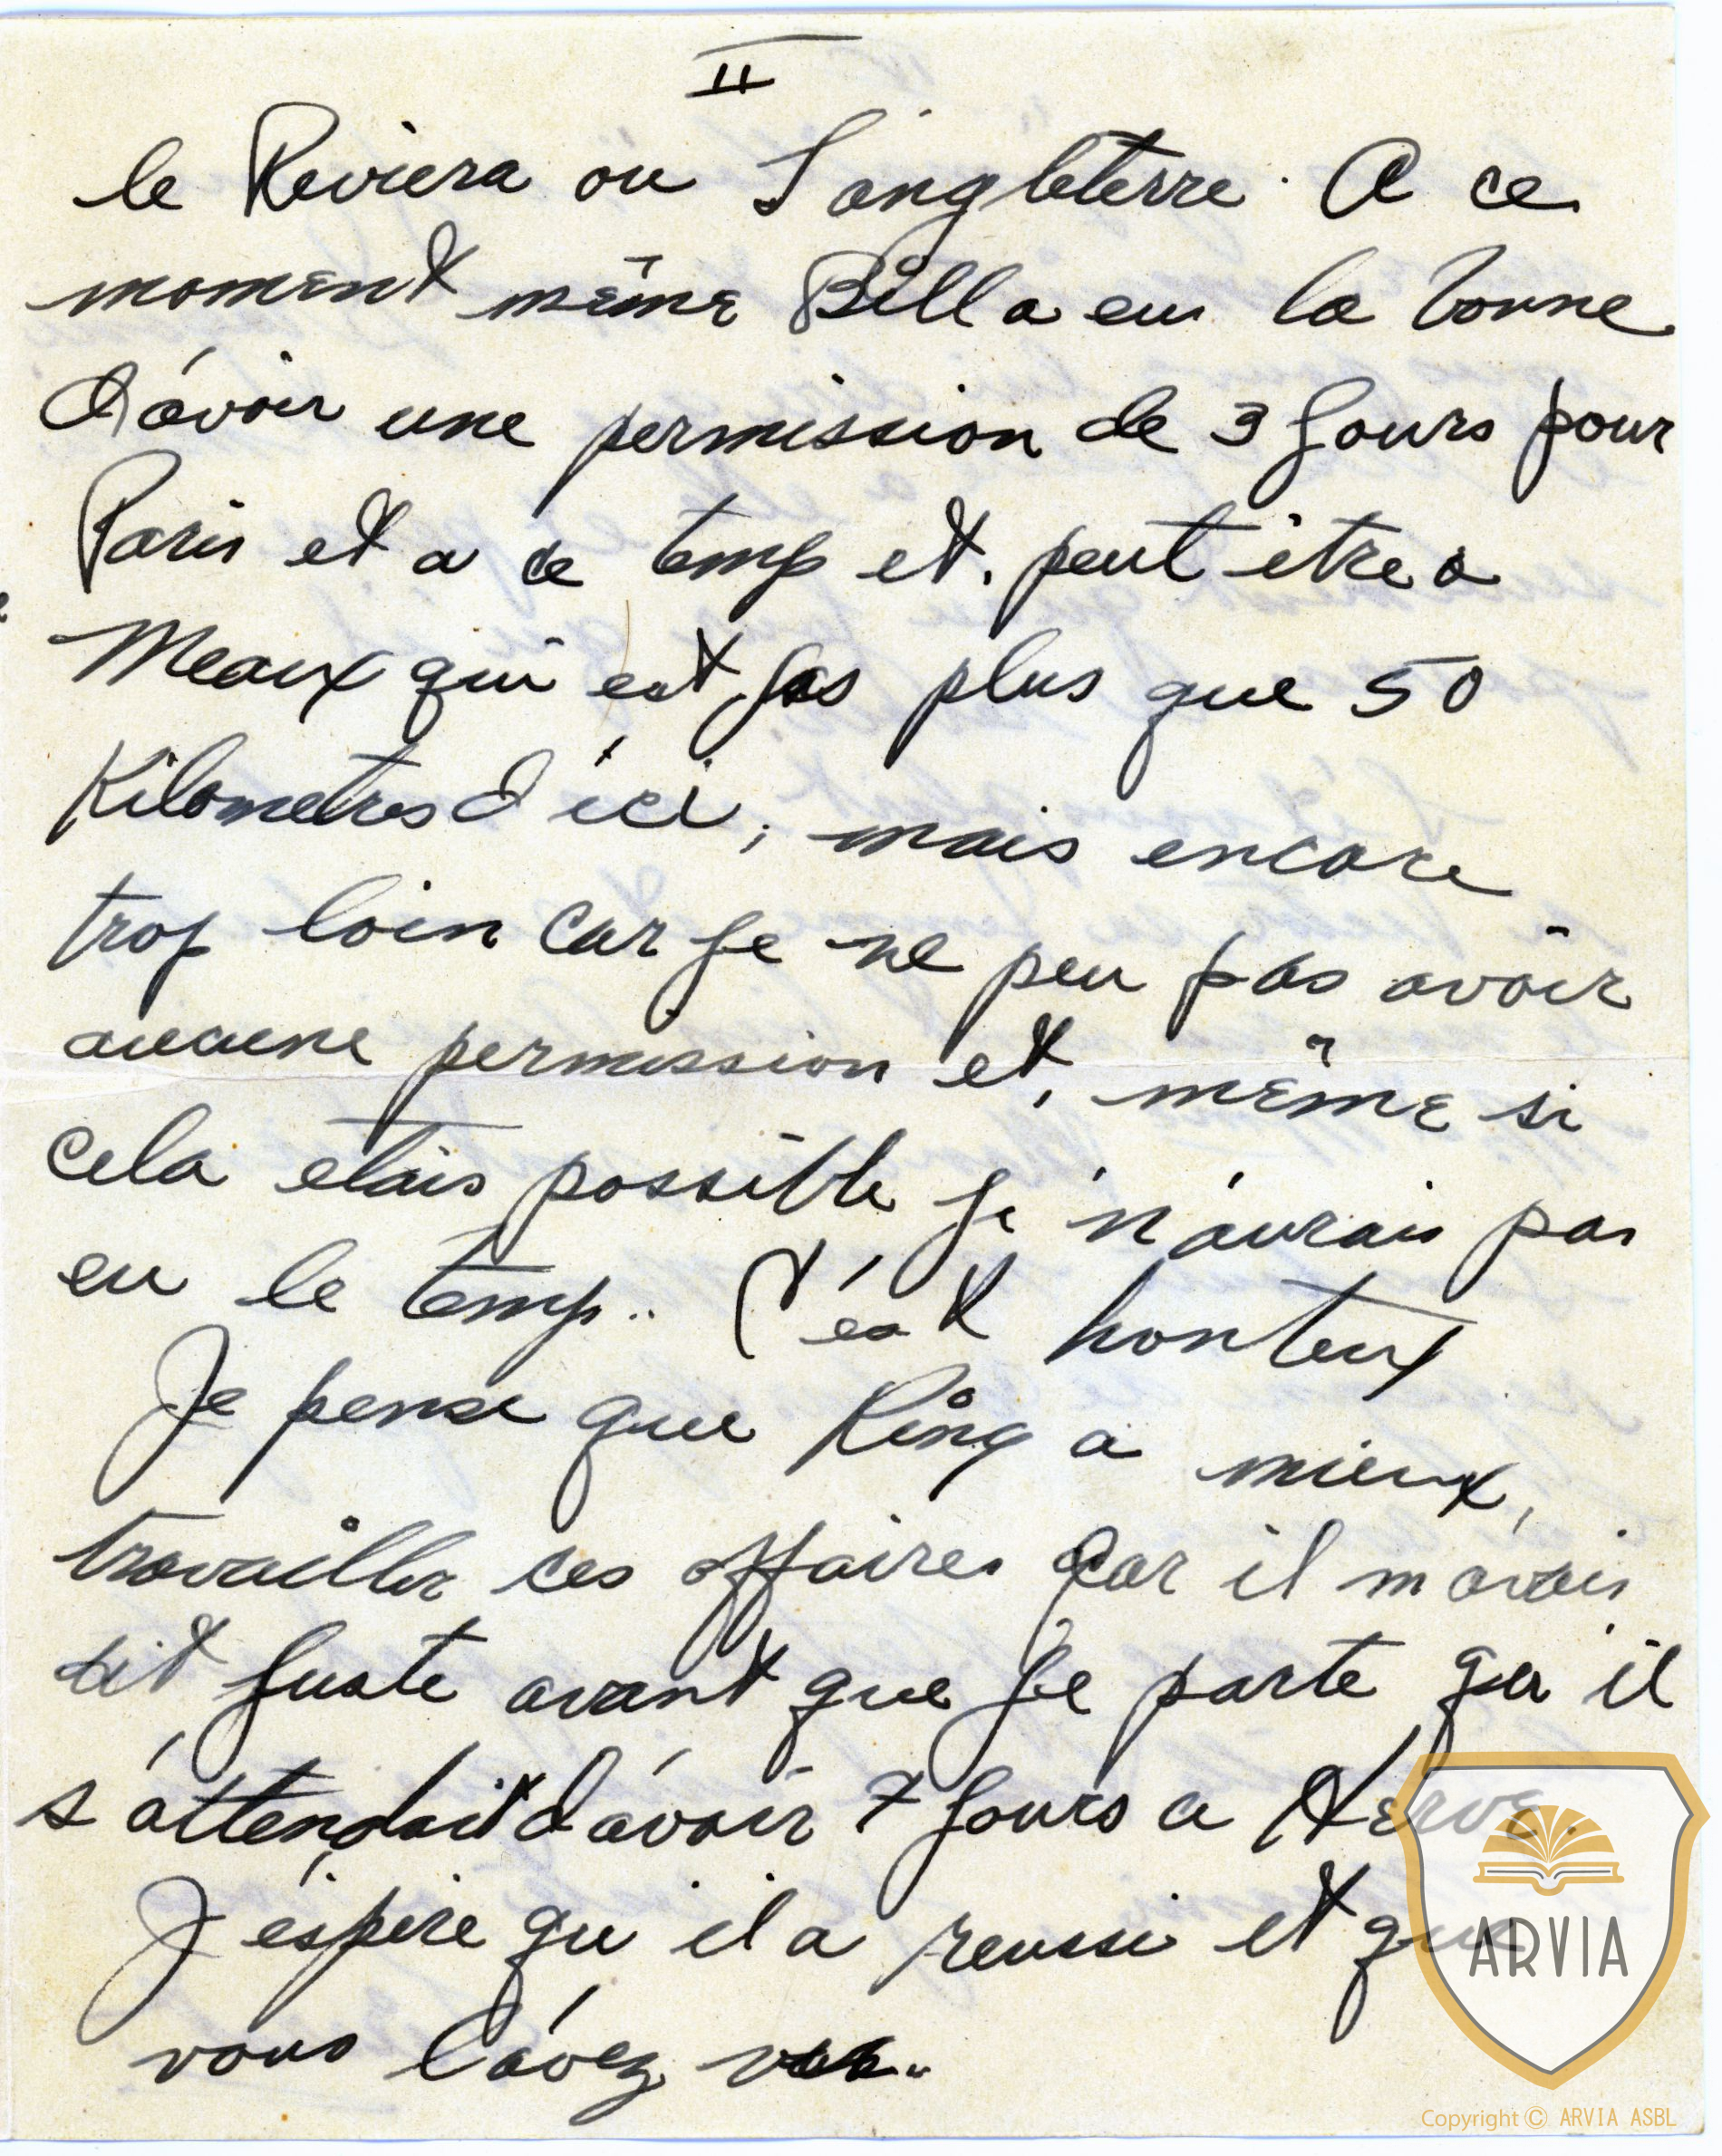 II
le Reviera ou L'angleterre. A ce
moment même Bill a eu la bonne
d'avoir une permission de 3 jours pour
Paris et a ce temp et. peut être a
Meaux qui est pas plus que 50
Kilometres d'ici, mais encore
trop loin car je ne peu pas avoir
aucune permission et, même si
cela etais possible je n'aurais pas
eu le temp.. C'est honteux
Je pense que King a mieux,
travailler ces affaires car il m'avais
dit juste avant que je parte qu il
s'attendait d'avoir 7 jours a Herve.
J'éspere qu il a reussi et que
vous l'avez vue..
ARVIA
Copyright © ARVIA ASBL